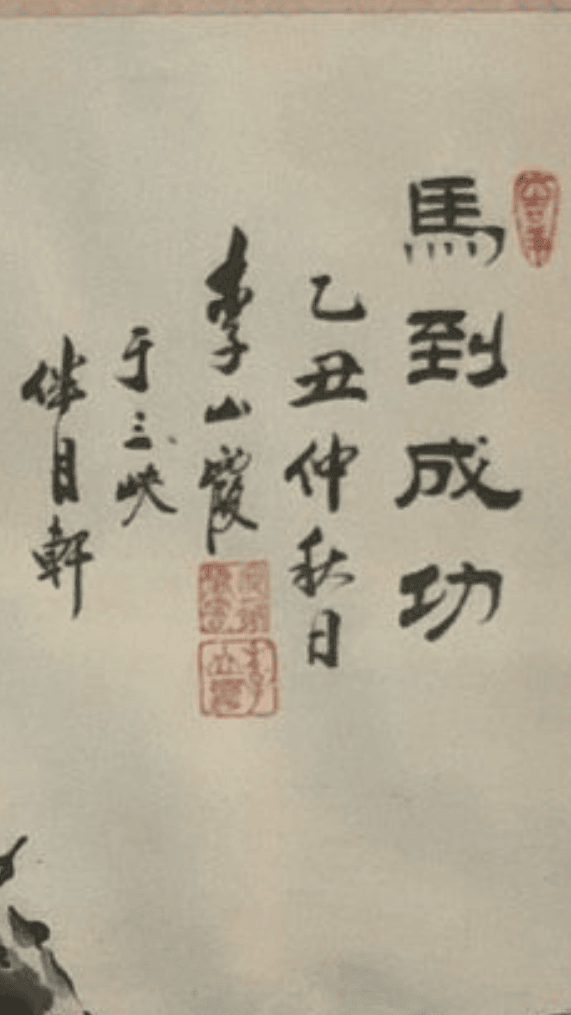 馬到成功
乙丑仲秋日
李山霞
于三峽
伴月軒